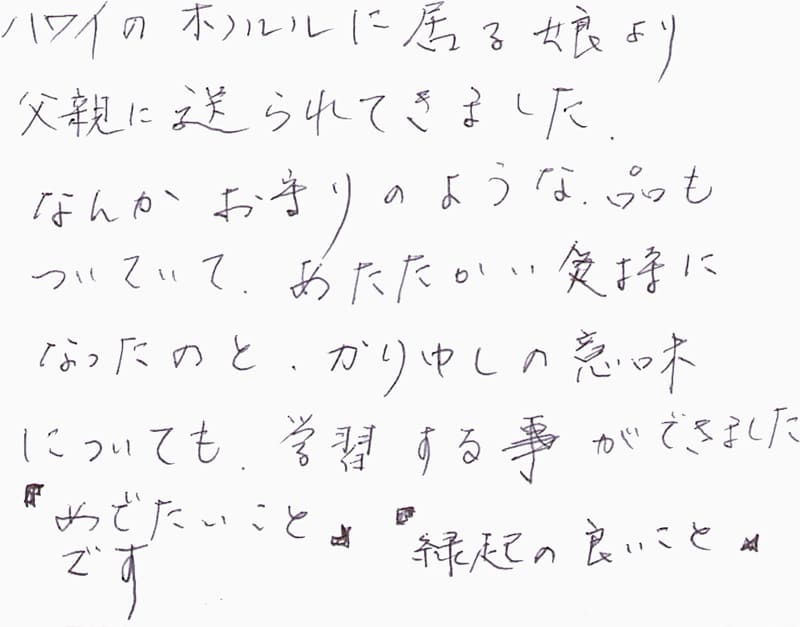 ハワイの ホノルルに居る娘より
父親に送られてきました.
なんかお守りのような.品も
ついていて.あたたかい気持に
なったのと.かりゆしの意味
についても.学習する事ができました
『めでたいこと』『縁起の良いこと』
です